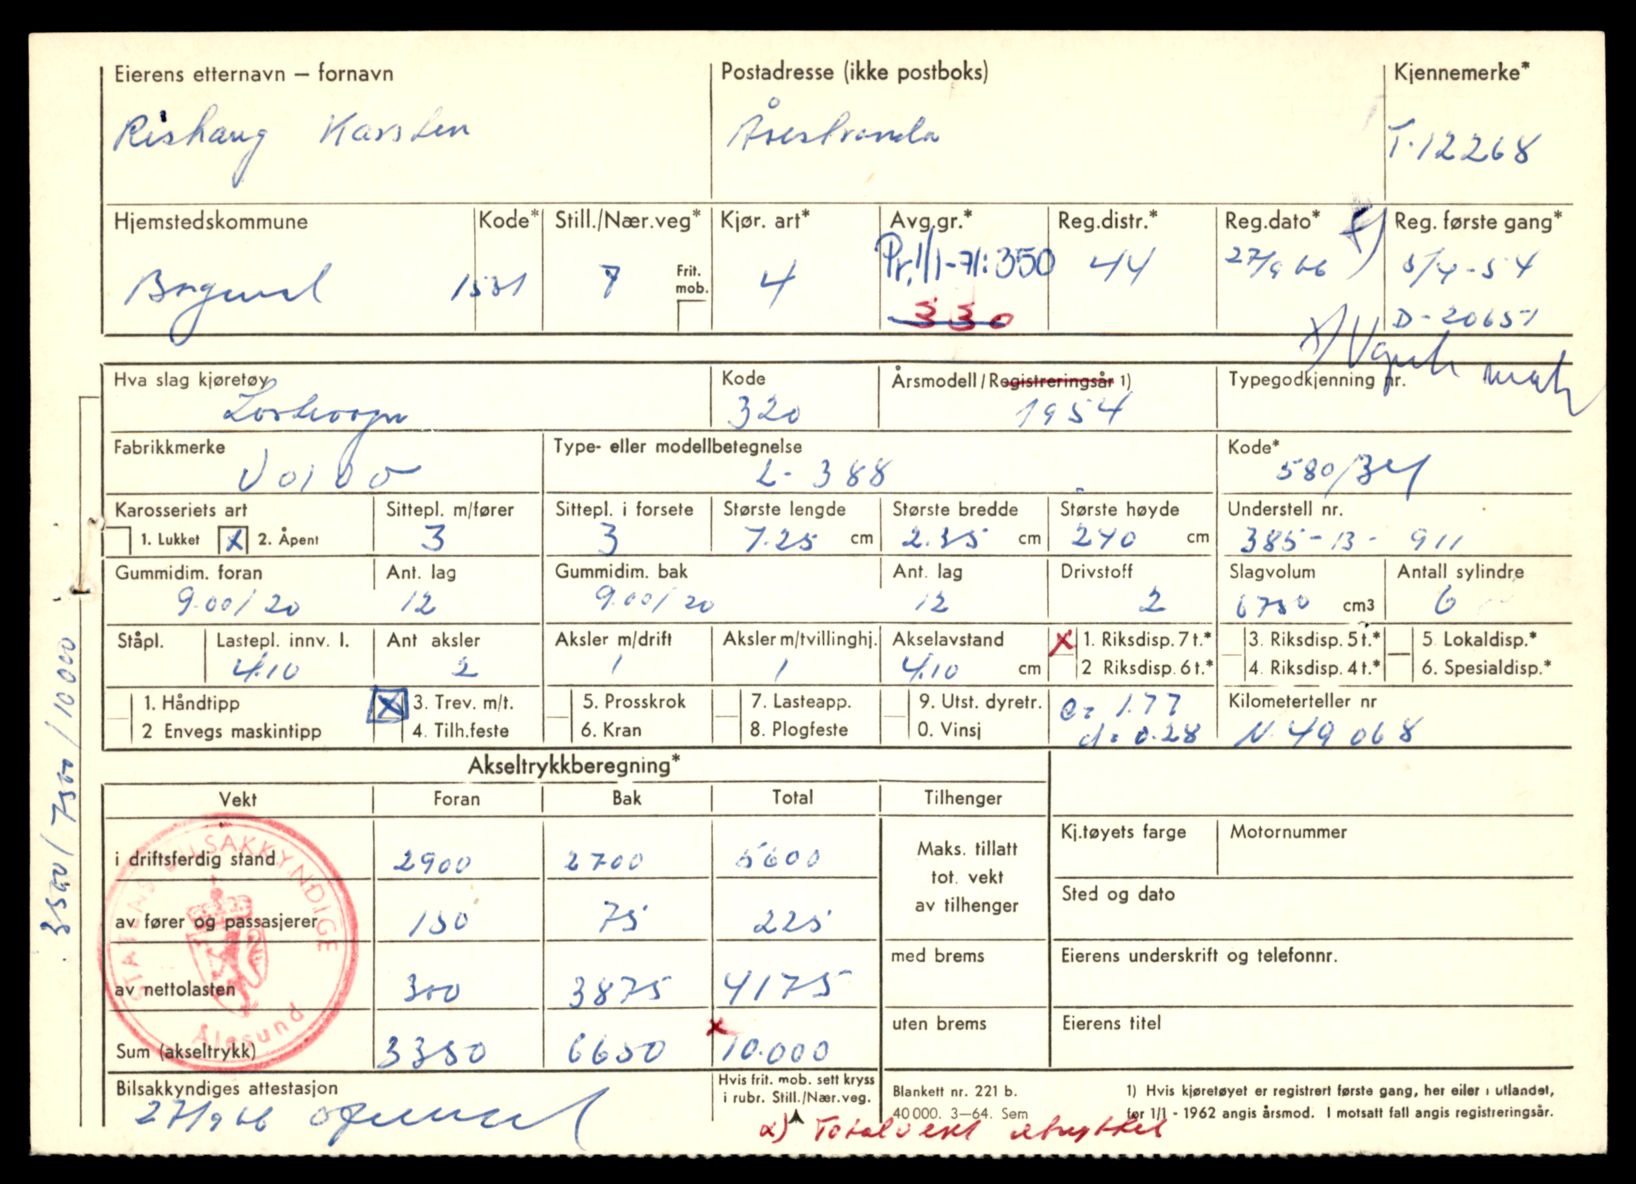 Eierens etternavn – fornavn Postadresse (ikke postboks) Kjennemerke*
Rishaug Karsten Årestranda T-12268
Hjemstedskommune Kode* Still./Nær.veg* Kjør. art* Avg.gr.* Reg.distr.* Reg.dato* Reg. første gang*
Borgund 1531 7 Frit. mob. 4 Pr. 1/1-71: 350 44 27/9 66 5/4-54
330 D-20651
x)
Hva slag kjøretøy Kode Årsmodell/Registreringsår 1) Typegodkjenning nr.
Lastevogn 320 1954
Fabrikkmerke Type- eller modellbetegnelse Kode*
Volvo L-388 580/34
Karosseriets art Sittepl. m/fører Sittepl. i forsete Største lengde Største bredde Største høyde Understell nr.
1. Lukket X 2. Åpent 3 3 7.25 cm 2.35 cm 240 cm 385-13-911
Gummidim. foran Ant. lag Gummidim. bak Ant. lag Drivstoff Slagvolum Antall sylindre
9.00/20 12 9.00/20 12 2 6750 cm3 6
Ståpl. Lastepl. innv. l. Ant aksler Aksler m/drift Aksler m/tvillinghj. Akselavstand X 1. Riksdisp. 7 t.* 3. Riksdisp. 5 t.* 5 Lokaldisp.*
4.10 2 1 1 4.10 cm 2 Riksdisp. 6 t.* 4. Riksdisp. 4 t.* 6. Spesialdisp.*
1. Håndtipp X 3. Trev. m/t. 5. Prosskrok 7. Lasteapp. 9. Utst. dyretr. c= 1.77 Kilometerteller nr
2 Envegs maskintipp 4. Tilh.feste 6. Kran 8. Plogfeste 0. Vinsj d= 0.28 N. 49068
Akseltrykkberegning*
Vekt Foran Bak Total Tilhenger
i driftsferdig stand 2900 2700 5600 Maks. tillatt tot. vekt av tilhenger Kj.tøyets farge Motornummer
Sted og dato
av fører og passasjerer 150 75 225
med brems Eierens underskrift og telefonnr.
av nettolasten 300 3875 4175
uten brems Eierens titel
Sum (akseltrykk) 3350 6650 x 10.000
Bilsakkyndiges attestasjon Hvis frit. mob. sett kryss i rubr. Still./Nær.veg. Blankett nr. 221 b. 1) Hvis kjøretøyet er registrert første gang, her eller i utlandet,
27/9 66 40 000. 3—64. Sem før 1/1 - 1962 angis årsmod. I motsatt fall angis registreringsår.
x) Totalvekt
STATENS BILSAKKYNDIGE
Ålesund
3500/7500/10000